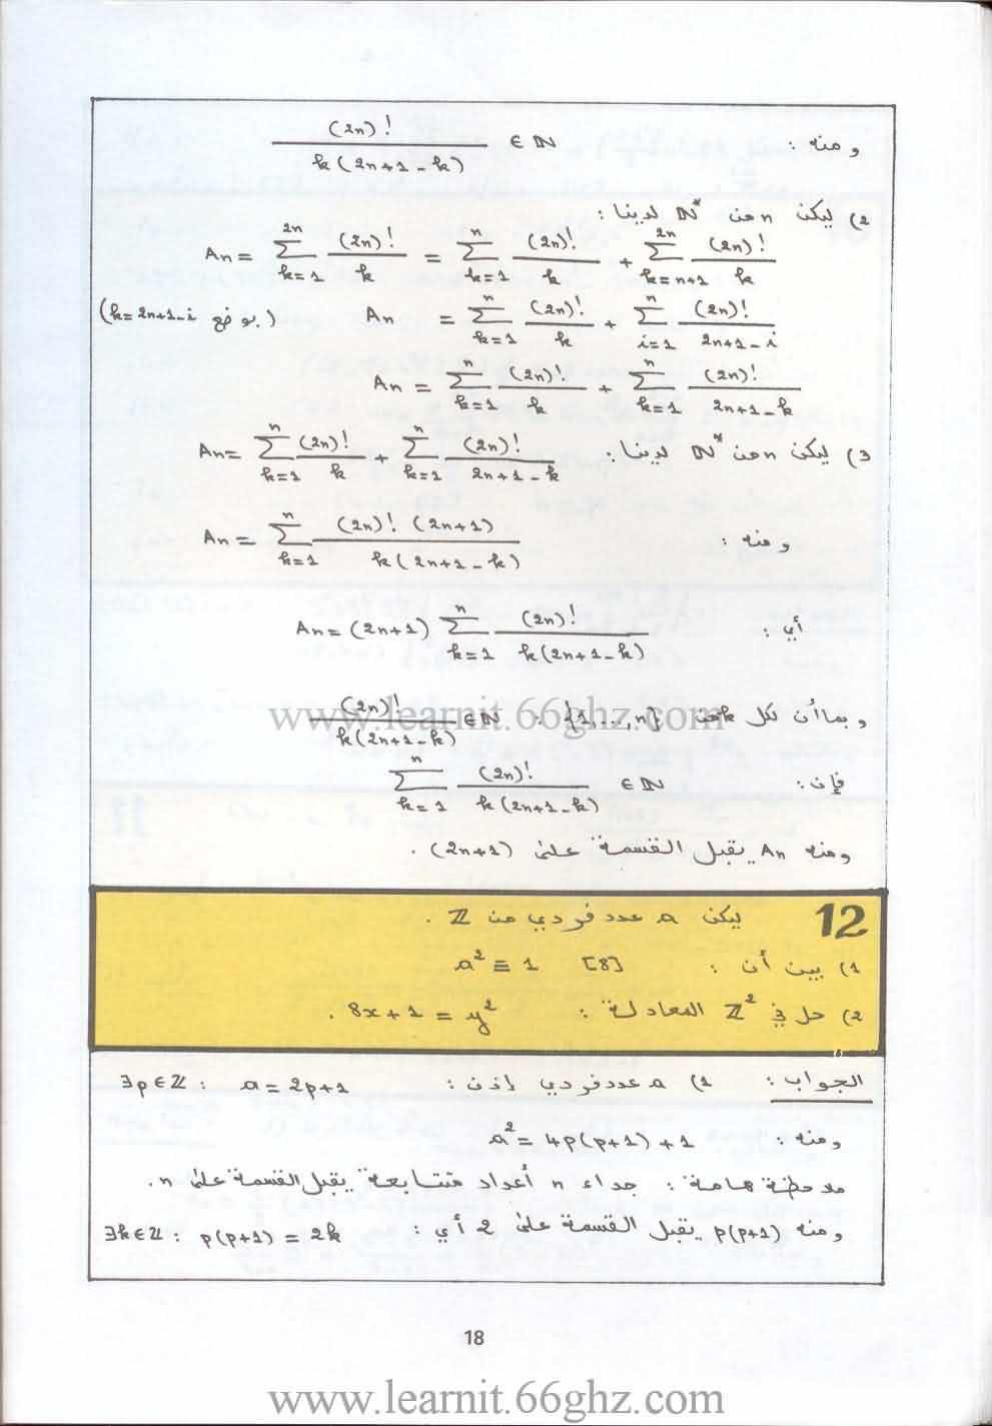 ومنه : (2n)! / k(2n+1-k) ∈ ℕ
2) ليكن n من ℕ* لدينا :
An = Σ_{k=1}^{2n} (2n)!/k = Σ_{k=1}^{n} (2n)!/k + Σ_{k=n+1}^{2n} (2n)!/k
An = Σ_{k=1}^{n} (2n)!/k + Σ_{i=1}^{n} (2n)!/(2n+1-i) (بوضع k=2n+1-i)
An = Σ_{k=1}^{n} (2n)!/k + Σ_{k=1}^{n} (2n)!/(2n+1-k)
3) ليكن n من ℕ* لدينا : An = Σ_{k=1}^{n} (2n)!/k + Σ_{k=1}^{n} (2n)!/(2n+1-k)
ومنه : An = Σ_{k=1}^{n} (2n)! (2n+1) / k(2n+1-k)
أي : An = (2n+1) Σ_{k=1}^{n} (2n)! / k(2n+1-k)
وبما أن لكل k من {1,...,n} : (2n)! / k(2n+1-k) ∈ ℕ
www.learnit.66ghz.com
فإن : Σ_{k=1}^{n} (2n)! / k(2n+1-k) ∈ ℕ
ومنه An يقبل القسمة على (2n+1) .
12 ليكن a عدد فردي من ℤ .
1) بين أن : a² ≡ 1 [8]
2) حل في ℤ² المعادلة : 8x+1 = y² .
الجواب : 1) a عدد فردي إذن : ∃p∈ℤ : a = 2p+1
ومنه : a² = 4p(p+1) + 1
ملاحظة هامة : جداء n أعداد متتابعة يقبل القسمة على n .
ومنه p(p+1) يقبل القسمة على 2 أي : ∃k∈ℤ : p(p+1) = 2k
18
www.learnit.66ghz.com